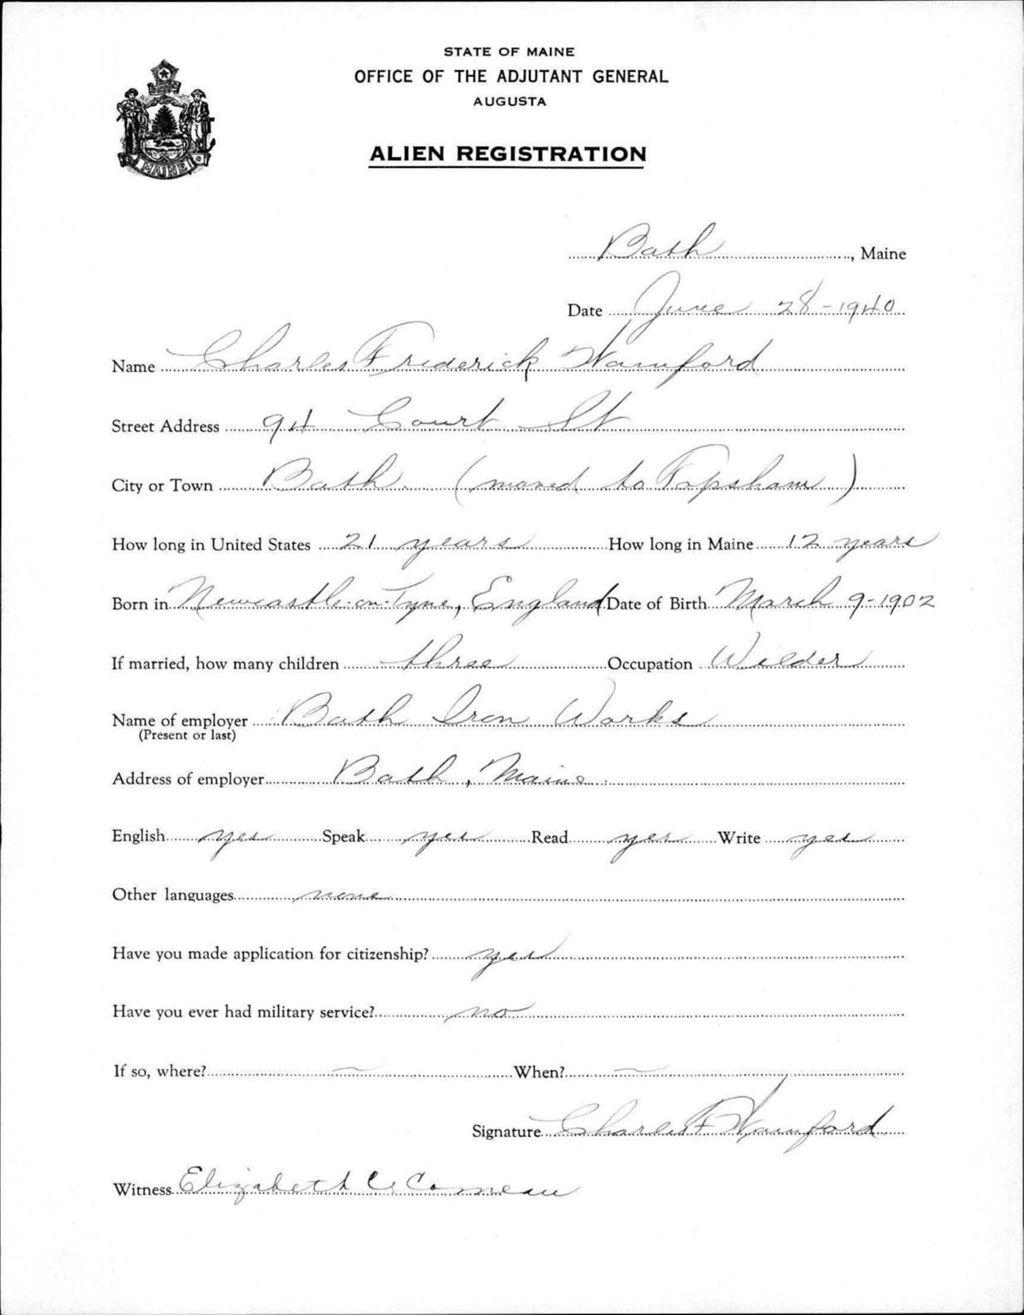 STATE OF MAINE
OFFICE OF THE ADJUTANT GENERAL
AUGUSTA
ALIEN REGISTRATION
MAINE
Bath, Maine
Date June 28-1940
Name Charles Frederick
Street Address 94 Court St
City or Town Bath. (moved to Topsham)
How long in United States 21 years How long in Maine 12 years
Born in Newcastle-on-Tyne, England Date of Birth March 9-1902
If married, how many children three Occupation Wilder
Name of employer Bath Iron Works
(Present or last)
Address of employer Bath, Maine.
English yes Speak yes Read yes Write yes
Other languages none
Have you made application for citizenship? yes
Have you ever had military service? no
If so, where? — When? —
Signature Charles F
Witness Elizabeth C. Comeau